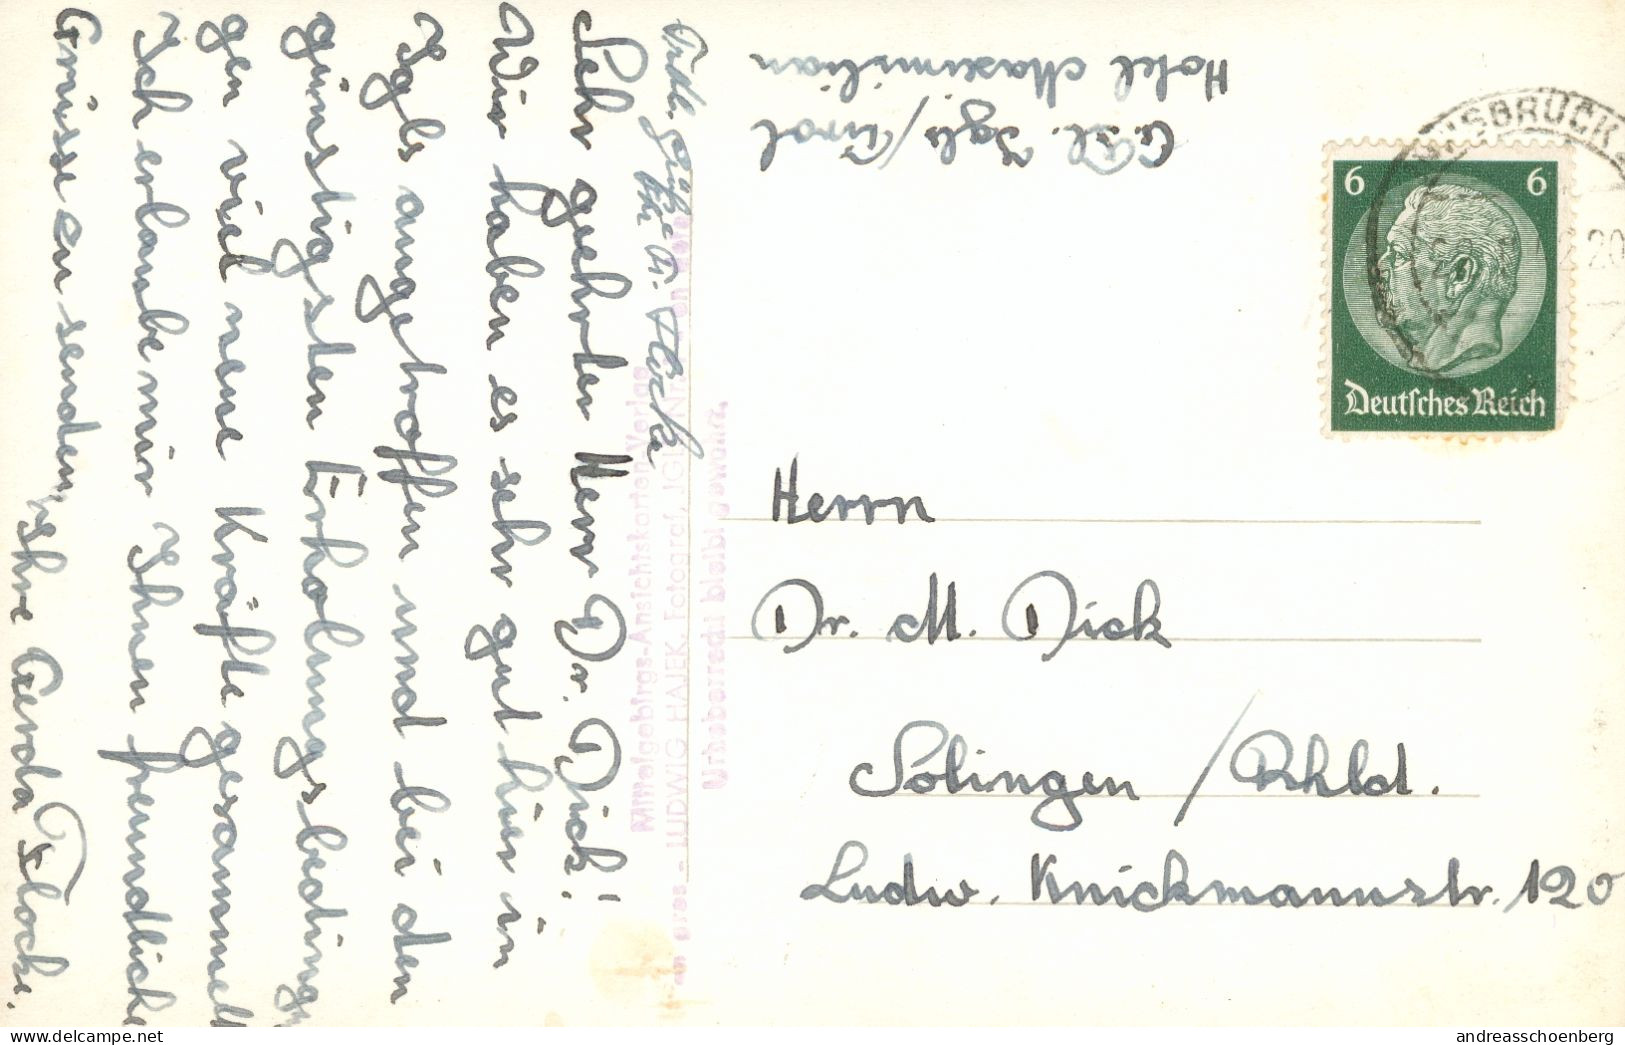 Sehr geehrter Herr Dr. Dick!
Wir haben es sehr gut hier in
Igls angetroffen und bei den
günstigsten Erholungsbedingun
gen viel neue Kräfte gesammelt
Ich erlaube mir Ihnen freundliche
Grüsse zu senden, Ihre Gerda Flocke.
Frdl. Grüße
Ihr
Flocke
Igls/Tirol
Hotel Maximilian
Mittelgebirgs-Ansichtskarten-Verlag
LUDWIG HAJEK, Fotograf, IGLS Nr.
Urheberrecht bleibt gewahrt.
INNSBRUCK
20
6 6
Deutsches Reich
Herrn
Dr. M. Dick
Solingen / Rhld.
Ludw. Knickmannstr. 120
delcampe.net
andreasschoenberg